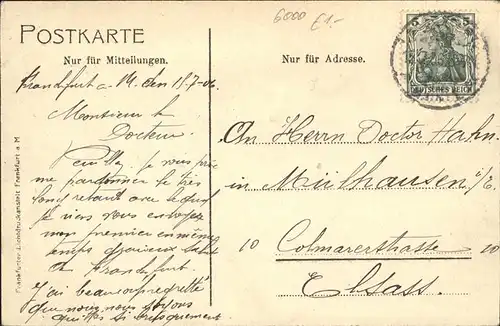 6000 £1.-
POSTKARTE
Nur für Mitteilungen.
Nur für Adresse.
5 5
DEUTSCHES REICH
Frankfurt a. M. den 18-7-06
Monsieur le
Docteur
Veuillez je vous prie
me pardonner le très
long retard avec lequel
je viens vous envoyer
mon premier en même
temps gracieux salut
de Frankfurt.
J'ai beaucoup regretté
que nous nous soyons
quittés si brusquement
An Herrn Doctor Hahn
in Mülhausen i/E
10 Colmarerstrasse 10
Elsass.
Frankfurter Lichtdruckanstalt Frankfurt a M